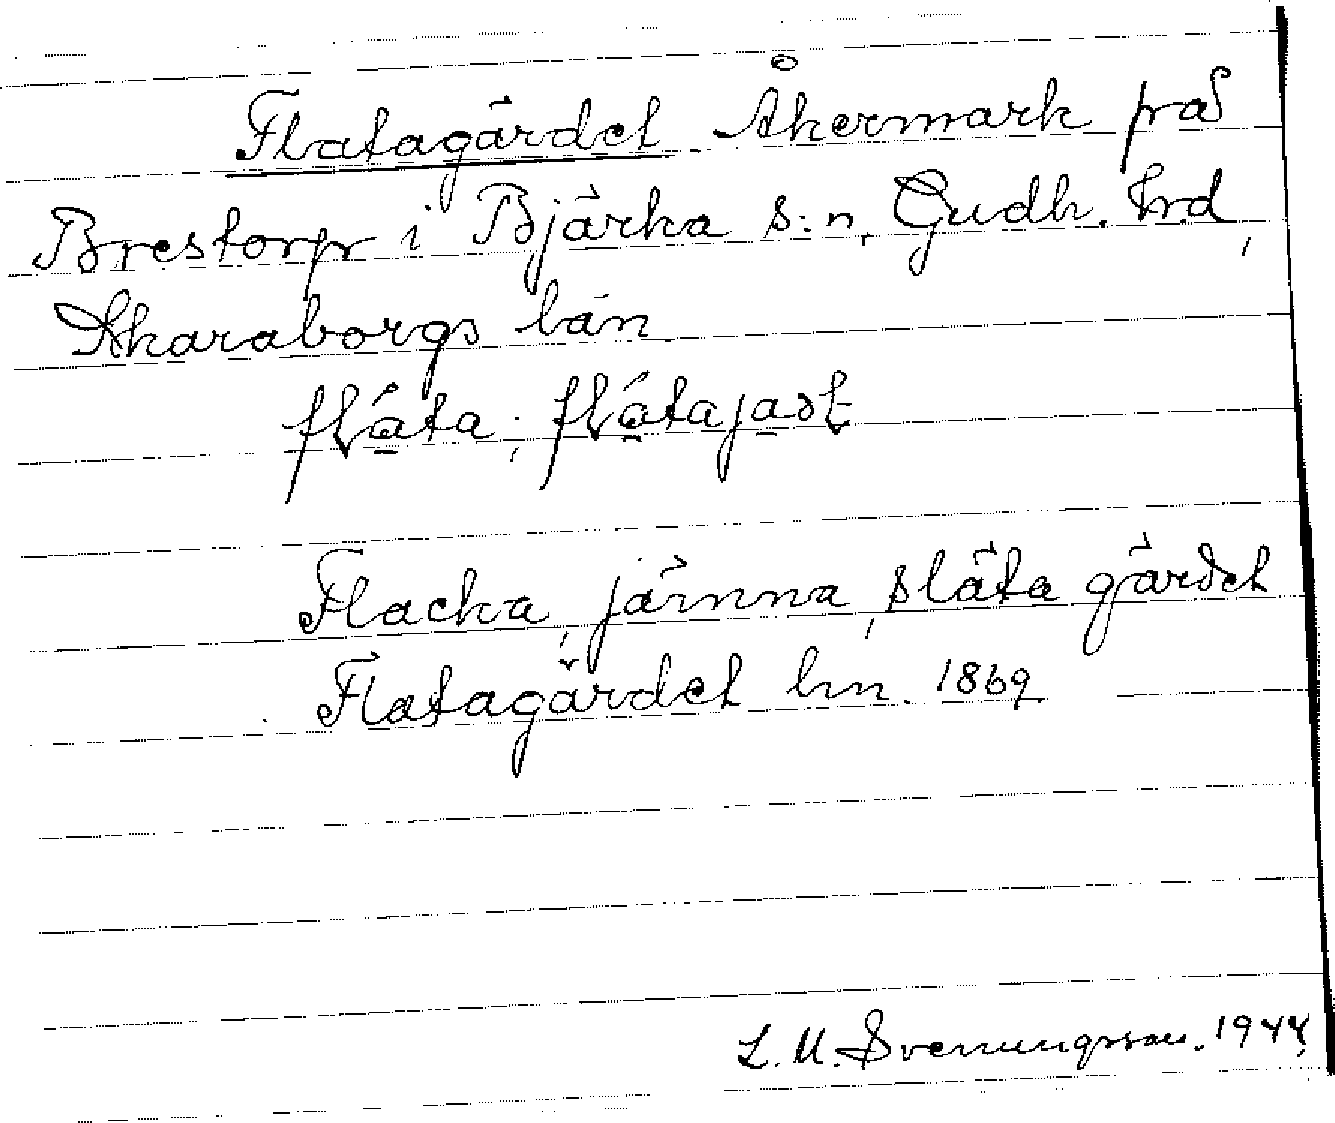 Flatagärdet Åkermark på
Brestorp i Bjärka s:n, Gudh. hrd,
Skaraborgs län
flata; flatajast
Flacka, jämna, släta gärdet
Flatagärdet hm. 1869
L. M. Svenungsson. 1944,